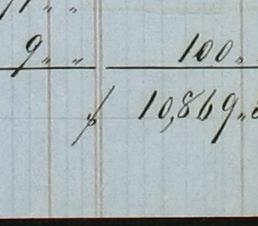 9 " " 100 "
$ 10,869 "